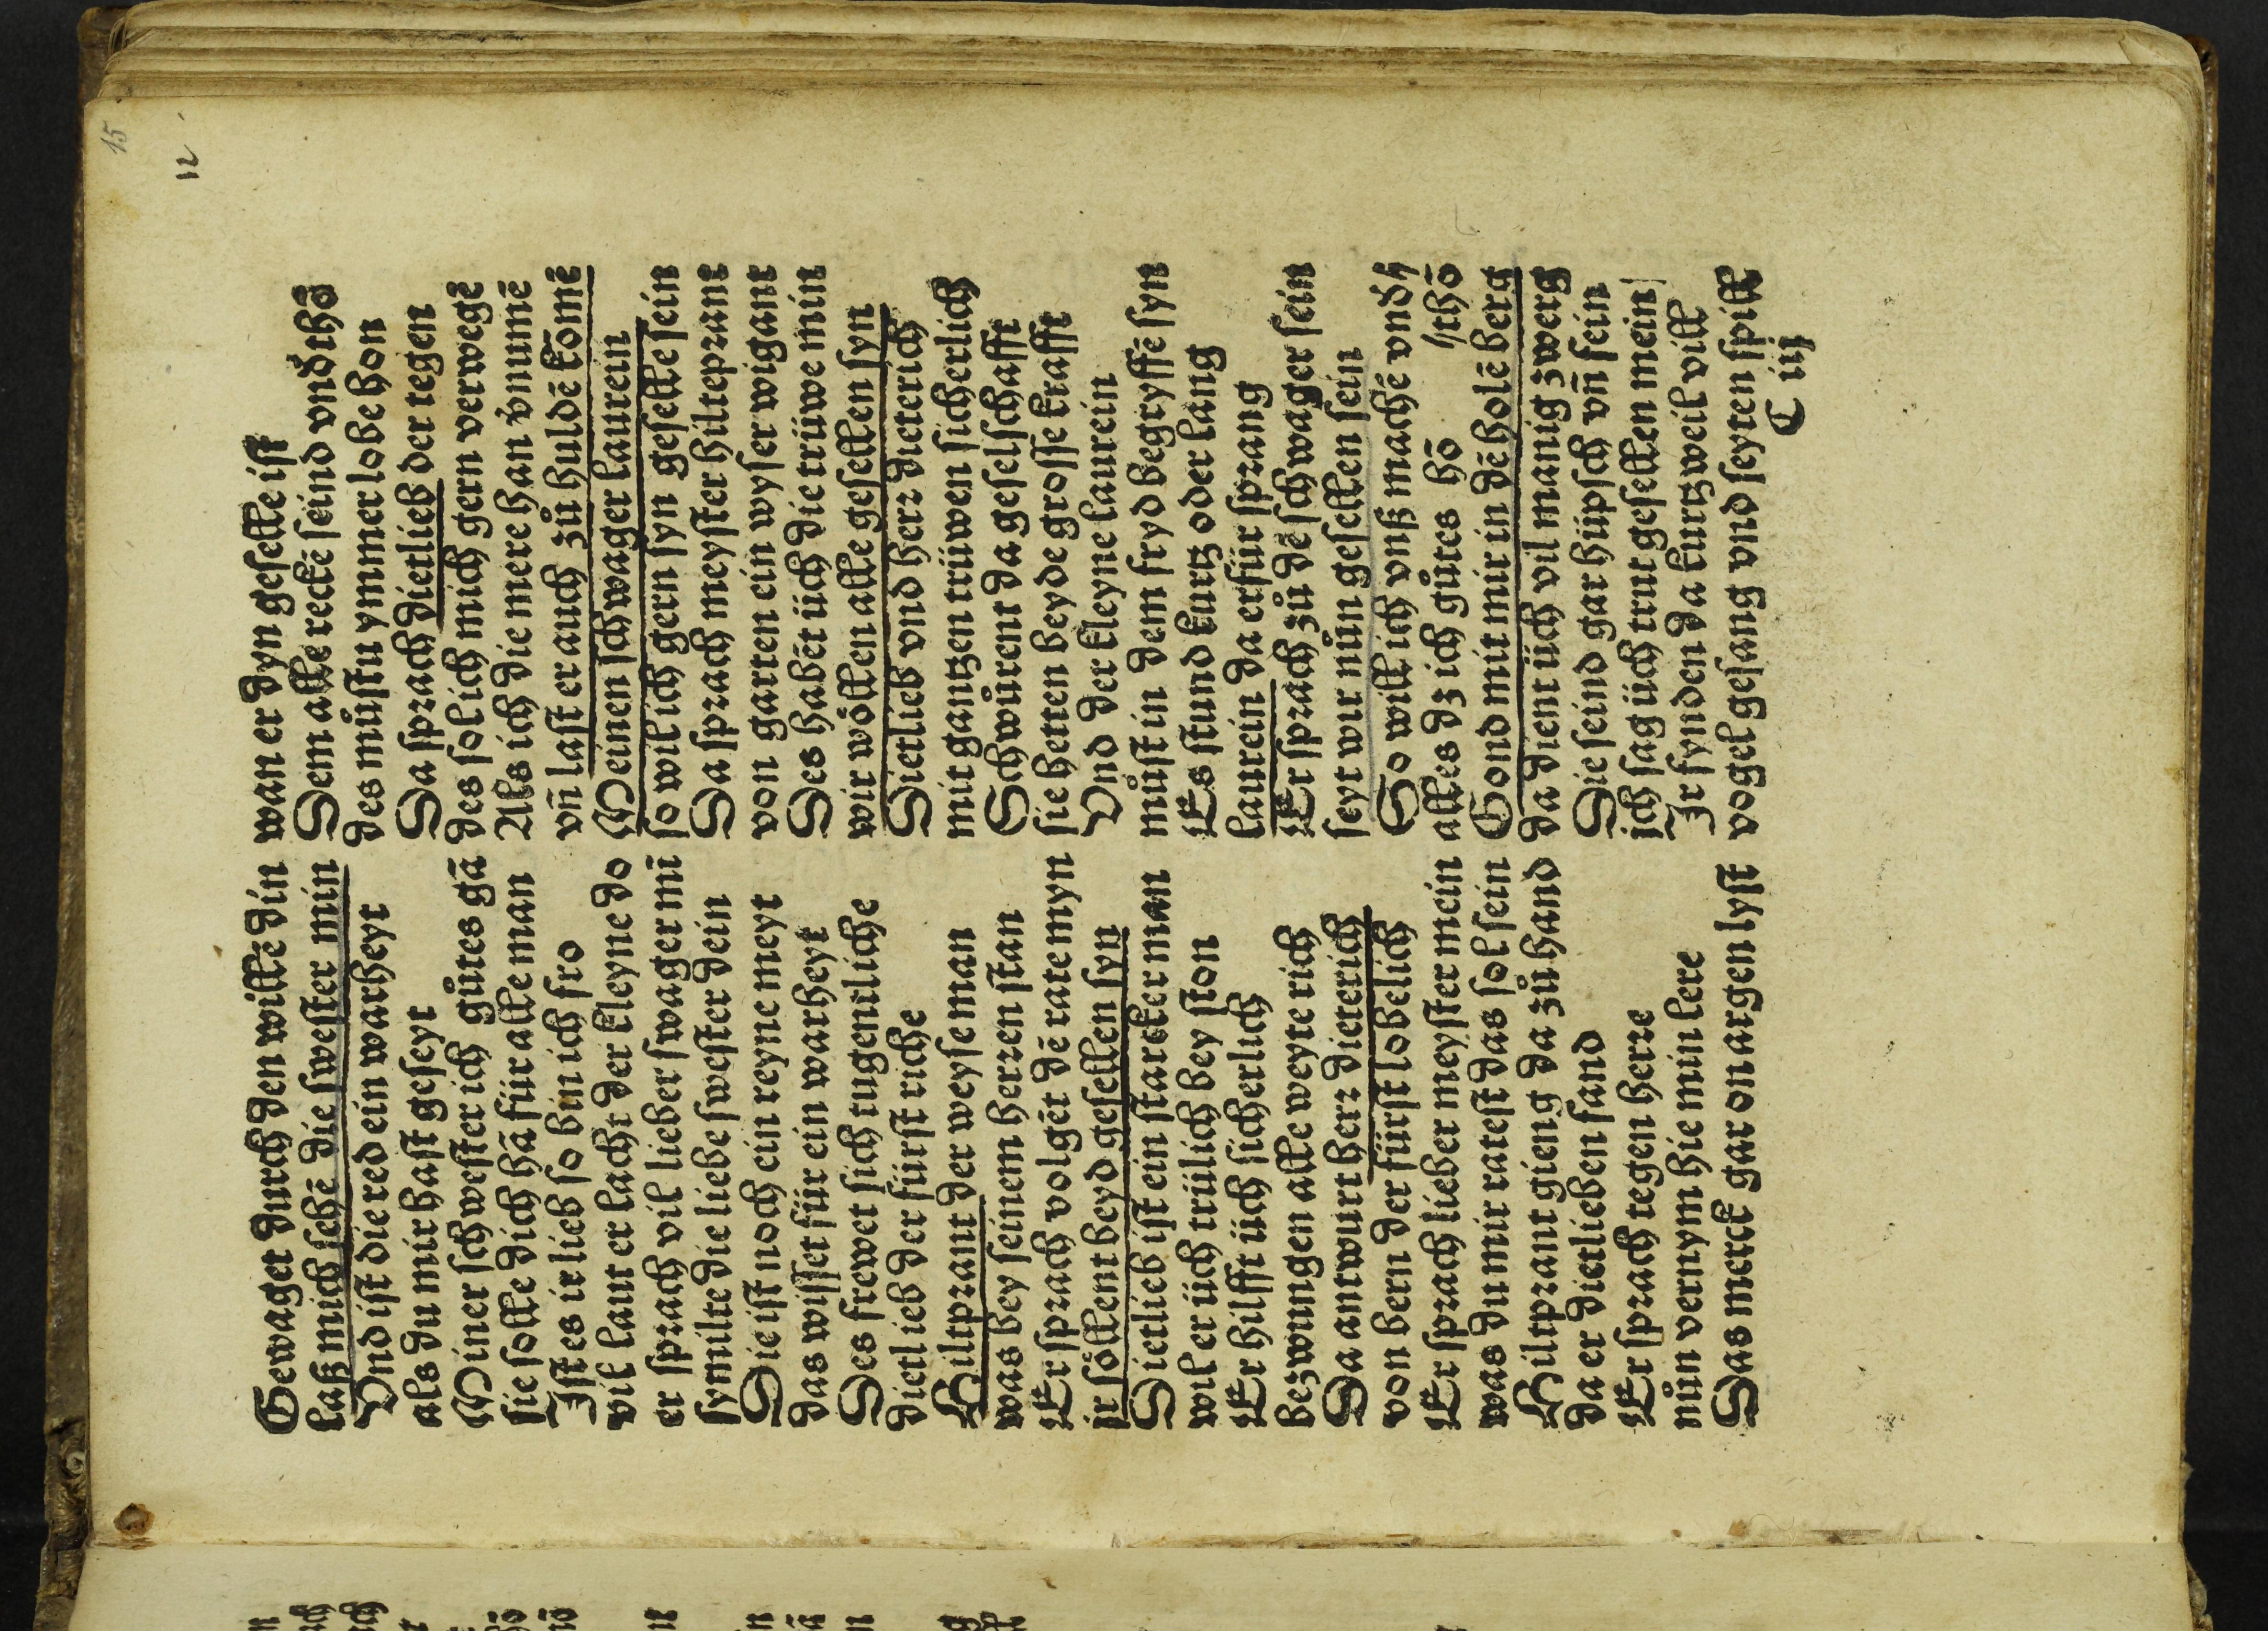 15
12
Gewager durch den willē din
laß mich sehē die swester min
Vnd ist die red ein warheyt
als du mir hast geseyt
Miner schwester ich gůtes gā
sie solle dich hā für alle man
Ist es ir lieb so bin ich fro
vil laut er lacht der kleyne do
er sprach vil lieber swager mī
symilte die liebe swester dein
Die ist noch ein reyne meyt
das wisset für ein warheyt
Des frewet sich tugentliche
dietlieb der fürst riche
Hiltprant der weyse man
was bey seinem herren stan
Er sprach volgēt dē rate myn
jr söllent beyd gesellen syn
Dietlieb ist ein starcker man
wil er üch trülich bey ston
Er hilfft üch sicherlich
bezwungen alle weyte rich
Da antwurt herr dieterich
von bern der fürst lobelich
Er sprach lieber meyster mein
was du mir ratest das sol sein
Hiltprant gieng da zů hand
da er dietlieben fand
Er sprach tegen herre
nůn vernym hie min lere
Das merck gar on argen lyst
wan er dyn geselle ist
Dem alle reckē seind vnd thō
des můstu ymmer lobe hon
Da sprach dietlieb der tegen
des solich mich gern verwegē
Als ich die mere han v̄numē
vn̄ last er auch zů huldē kōmē
Meinen schwager laurein
so wil ich gern syn geselle sein
Da sprach meyster hilteprant
von garten ein wyser wigant
Des habēt üch die trüwe min
wir wöllen alle gesellen syn
Dietlieb vnd herr dieterich
mit gantzen trüwen sicherlich
Schwůrent da geselschafft
sie hetten beyde grosse krafft
Vnd der kleyne laurein
můst in dem fryd begryffē syn
Es stund kurtz oder lang
laurein da erfür sprang
Er sprach zů dē schwager sein
seyt wir nůn gesellen sein
So will ich vnß machē vnd⸗
alles dz ich gůtes hō ⸗thō
Gond mit mir in dē holē berg
da dient üch vil manig zwerg
Die seind gar hüpsch vn̄ fein
ich sag üch trut gesellen mein
Ir fynden da kurtzweil vill
vogel gesang vnd seyten spill
C iij